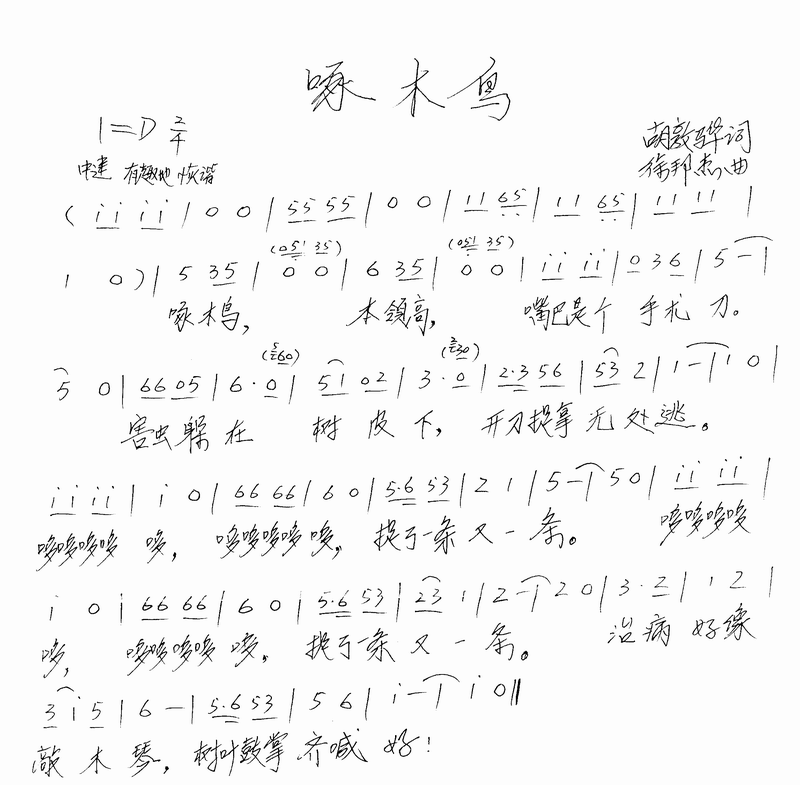 啄木鸟
1=D 2/4
胡敦骅词
中速 有趣地 诙谐
徐邦杰曲
( i̇i̇ i̇i̇ | 0 0 | 55 55 | 0 0 | 11 65 | 11 65 | 11 11 |
(051 35) (051 35)
1 0 ) | 5 35 | 0 0 | 6 35 | 0 0 | i̇i̇ i̇i̇ | 0 3 6 | 5 - |
啄木鸟, 本领高, 嘴巴是个 手术 刀。
5 0 | 66 05 | 6· 0 | 51 02 | 3· 0 | 2·3 56 | 53 2 | 1 - | 1 0 |
害虫躲 在 树 皮 下, 开刀捉拿 无 处 逃。
i̇i̇ i̇i̇ | i̇ 0 | 66 66 | 6 0 | 5·6 53 | 2 1 | 5 - | 5 0 | i̇i̇ i̇i̇ |
哆哆哆哆 哆, 哆哆哆哆 哆, 捉了一条 又 一 条。 哆哆哆哆
i̇ 0 | 66 66 | 6 0 | 5·6 53 | 23 1 | 2 - | 2 0 | 3· 2 | 1 2 |
哆, 哆哆哆哆 哆, 捉了一条 又 一 条。 治病 好像
3 i̇ 5 | 6 - | 5·6 53 | 5 6 | i̇ - | i̇ 0 ‖
敲 木 琴, 树叶鼓掌 齐喊 好!